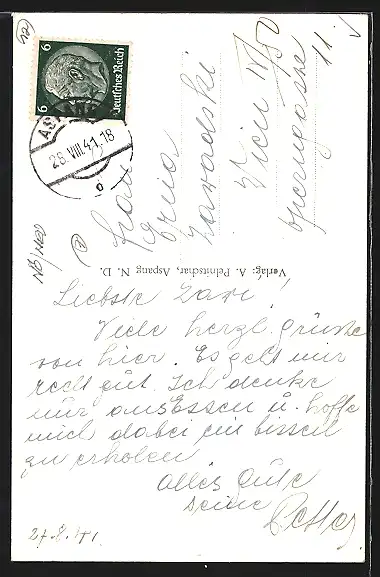 6 6
Deutsches Reich
AS
26.VIII.41.18
Frau
Zavadski
Wien
Operngasse
11
Verlag: A. Pelnitschar, Aspang N. D.
Liebste Zavi!
Viele herzl. Grüsse
von hier. Es geht mir
recht gut. Ich denke
nur ans Essen u. hoffe
mich dabei ein bissel
zu erholen
alles Gute
Deine
27.8.41.